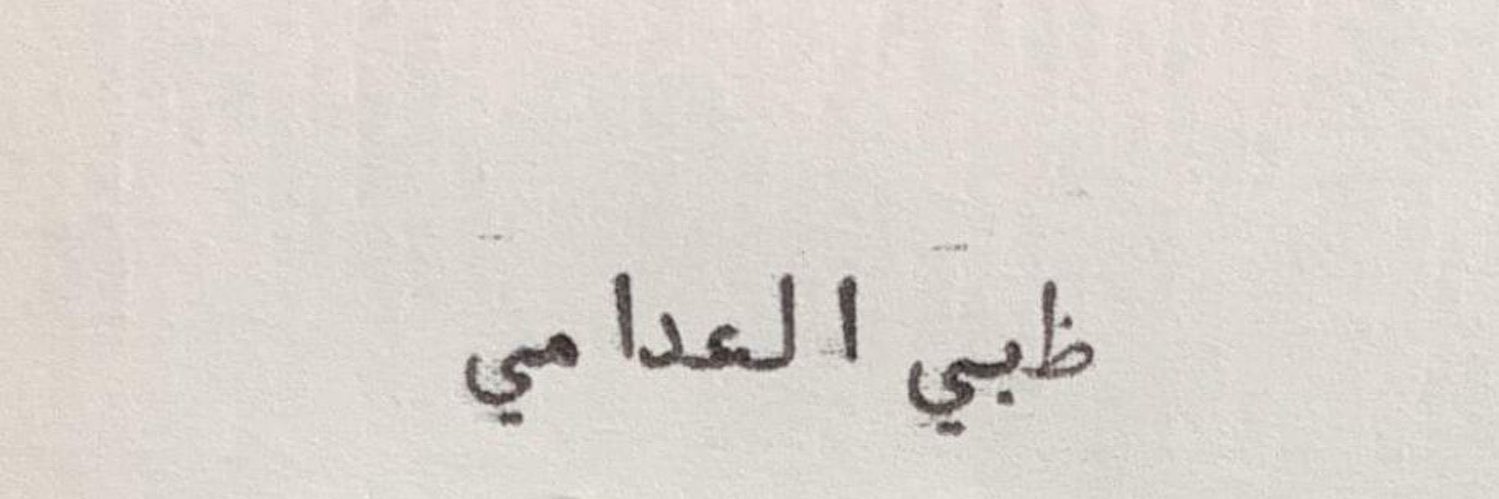 ظبي العدامي